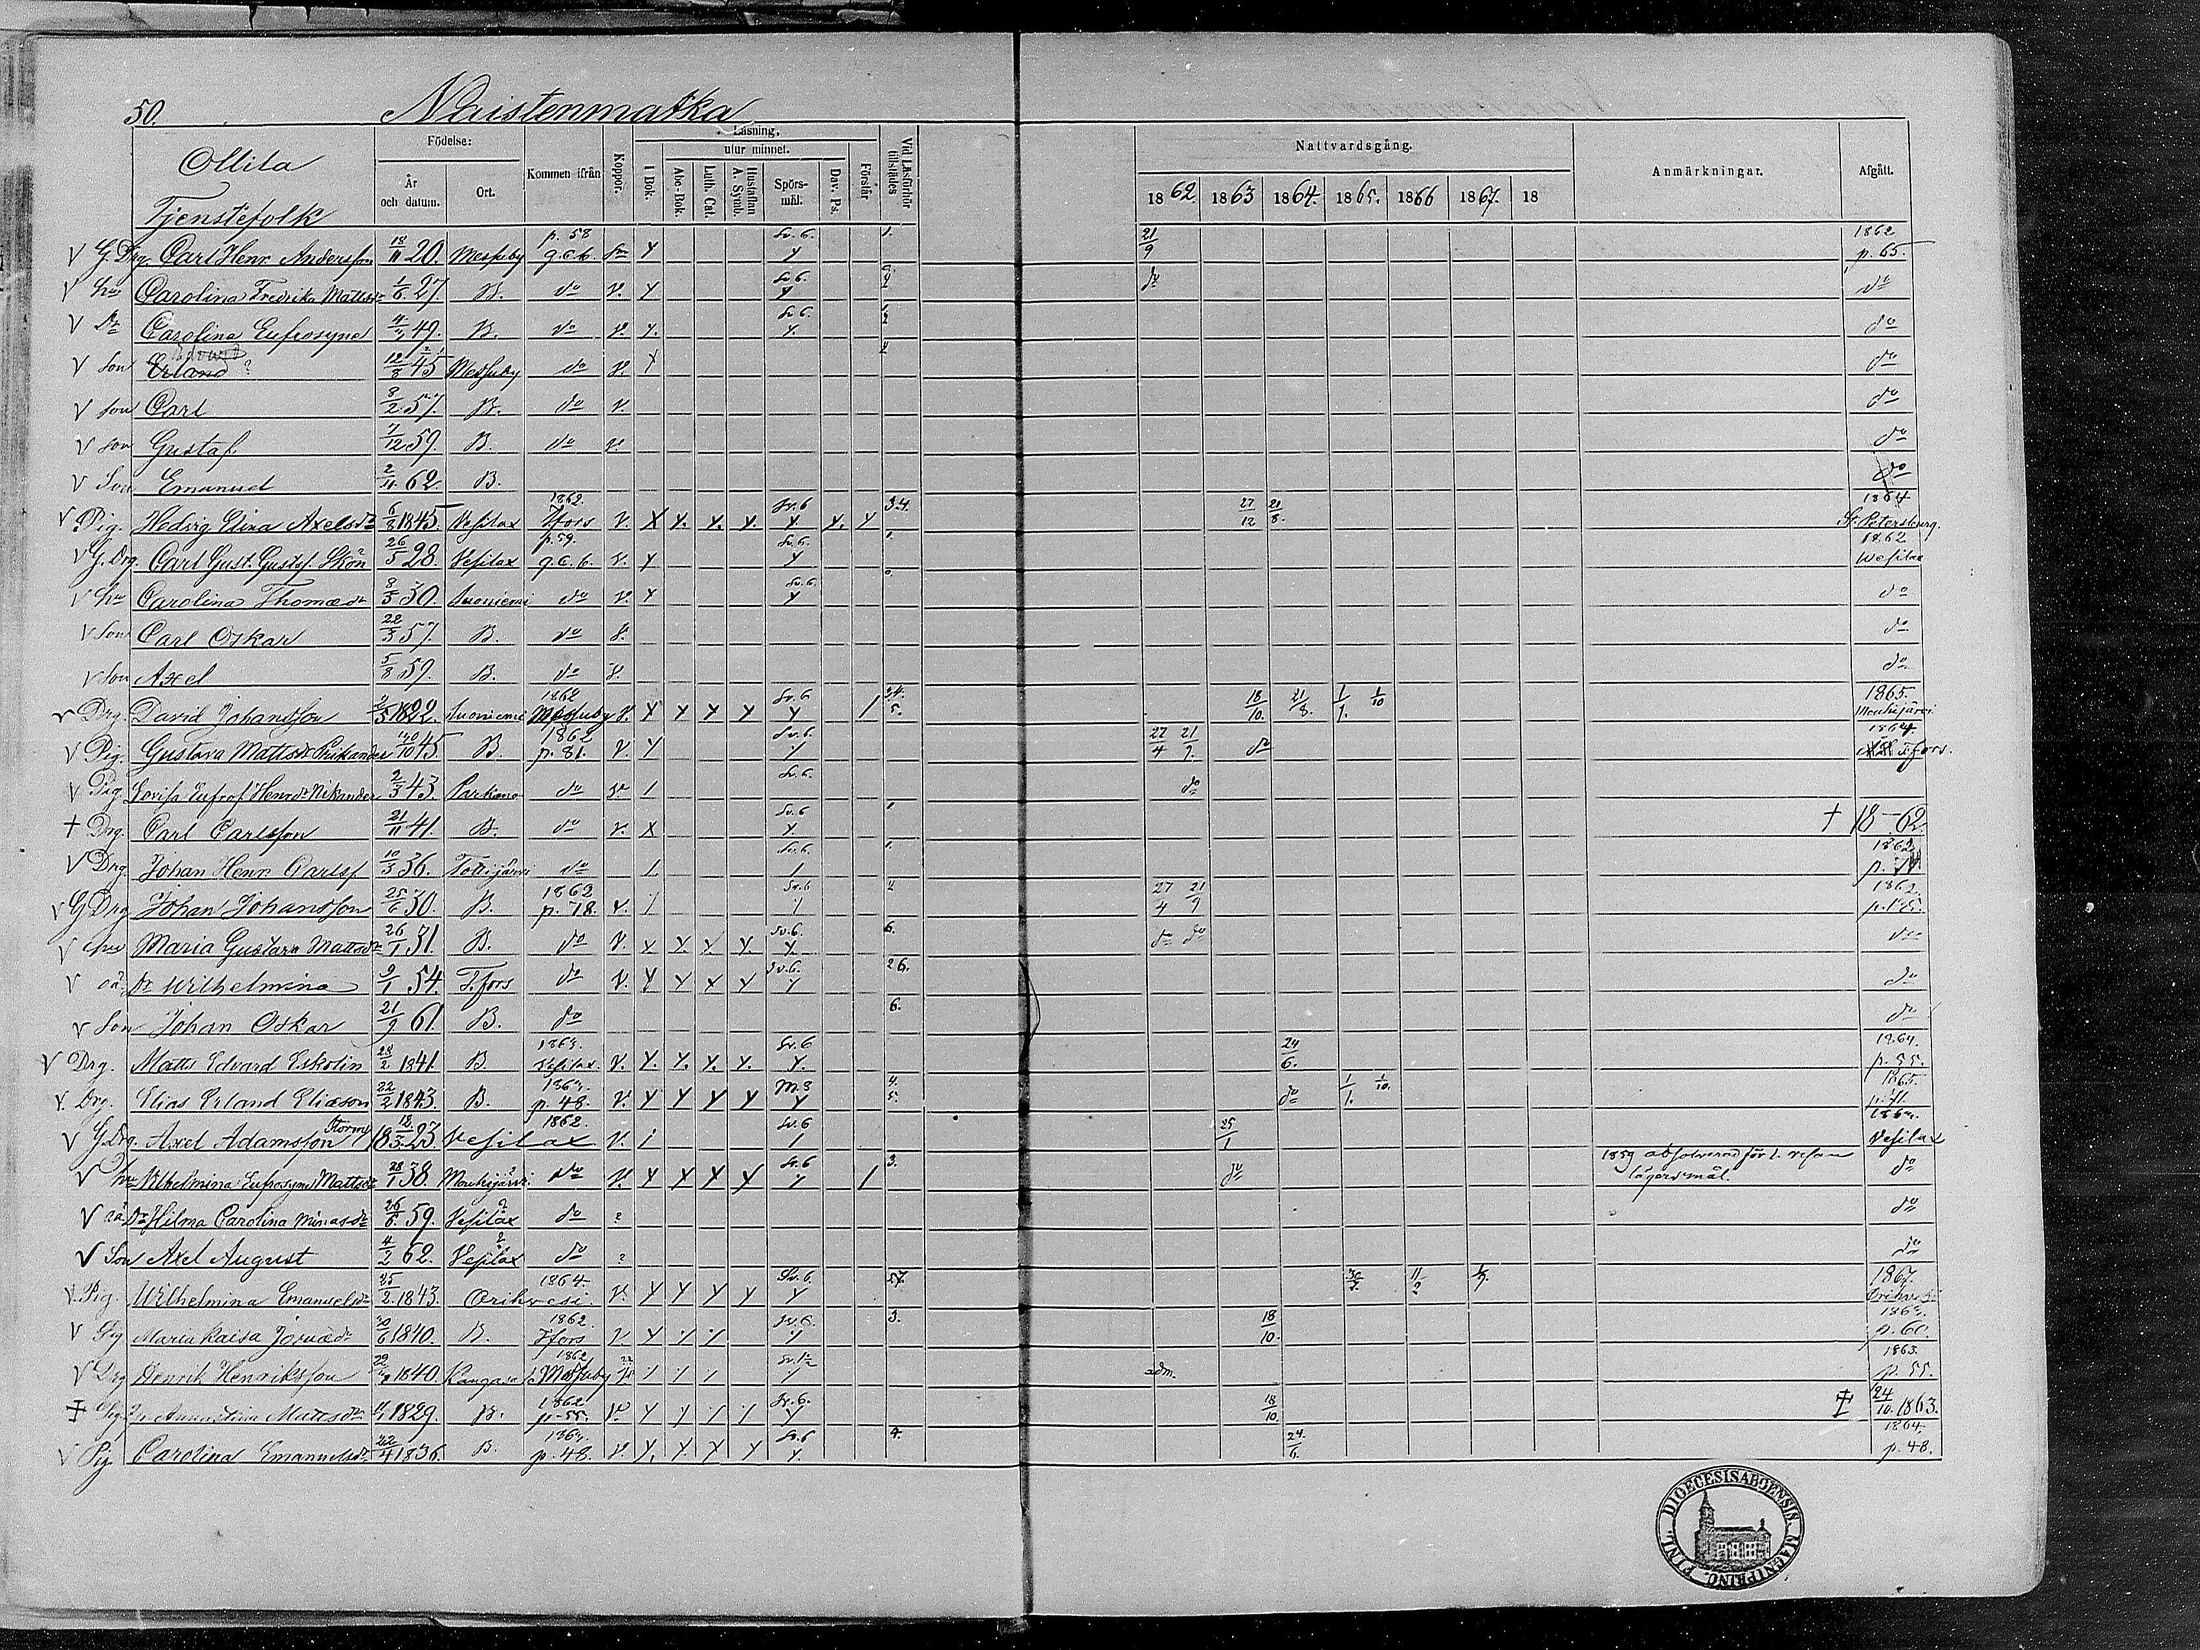 50. Naistenmatka
Ollila
Tjenstefolk
Födelse: År och datum. Ort. Kommen ifrån Koppor. Läsning, utur minnet. I Bok. Abc-Bok. Luth. Cat. Hustaflan A. Symb. Spörs-mål. Dav. Ps. Förstår Vid Läsförhör tillstädes Nattvardsgång. 1862 1863 1864. 1865. 1866 1867. 18 Anmärkningar. Afgått.
V G. Drg. Carl Henr. Andersson 18/11 20. Messuby p. 58 g.c.b. Y Sv. 6. Y 1. 21/9 1862 p. 65.
V hu Carolina Fredrika Mattsdr 1/6 27. B. do V. Y Sv. 6. Y do do
V Dr Carolina Eufrosyne 49. B. do V. Y. Sv. 6. Y. do
V son Erland ? Edvard 12/8 45 Messuby do V. Y do
V son Carl 8/2 57. B. do V. do
V son Gustaf 7/12 59. B. do V. do
V Son Emanuel 2/11 62. B. do
V Pig. Hedvig Elina Axelsdr 6/8 1845 Vesilax 1862. Tfors V. X Y. Y. Y. Sv. 6 Y. Y. Y 3.4. 27/12 21/8. 1864 St. Petersburg.
V G. Drg. Carl Gust. Gustafs. Skön 26/5 28. Vesilax p. 59. g.c.b. V. Y Sv. 6. Y 1. 1862 Wesilax
V hu Carolina Thomædr 8/3 30. Suoniemi do V. Y Sv. 6. Y do
V Son Carl Oskar 22/3 57. B. do V. do
V Son Axel 5/8 59. B. do V. do
V Drg. David Johansson 1822. Suoniemi 1862 Messuby V. Y Y Y Y Sv. 6 Y / 3.4. 5. 18/10. 21/8. 1/1. 1/10 1865. Mouhijärvi
V Pig. Gustava Mattsdr 45. B 1862 p. 81. V. Y Sv. 6 / 27/4 21/9. do 1864 Tfors.
V Pig. Lovisa Eufros. Henrdr Nikander 2/3 43. Parkano do / Sv. 6. do
+ Drg. Carl Carlsson 21/11 41. B. do V. X Sv. 6 Y. 1 + 18-62
V Drg. Johan Henr. Carlss 10/3 36. Tottijärvi do / Sv. 6. / 1. 1862
V G Drg Johan Johansson 25/6 30. B. 1862 p. 78. V. / Sv. 6 / 27/4 21/9 1862.
V hu Maria Gustava Mattsdr 26/1 31. B. do V. Y. Y. Y. Y. Sv. 6. Y. 6. do do do
V oä. Dr Wilhelmina 9/1 54. T.fors do V. Y Y Y Y Sv. 6. Y 26. do
V Son Johan Oskar 21/9 61. B. do 6. do
V Drg. Matts Edvard Eskolin 28/2 1841. B 1863. Vesilax V. Y. Y. Y. Y. Sv. 6 Y. 24/6. 1864. p. 55.
V. Drg. Elias Erland Eliæson 22/2 1843. B. p. 48. V. Y Y Y Y M. 3 Y 4. 5. do 1/1. 1/10. 1865. p. 41.
V G. Drg. Axel Adamsson Storm 18/3 1823 Vesilax 1862. V. / Sv. 6 / 25/1 Vesilax
V hu Wilhelmina Eufrosyne Mattsdr 28/1 38. Mouhijärvi do V. Y Y Y Y Sv. 6 / / 3. do 1859 absolverad för lägersmål. do
V oä Dr Hilma Carolina Minasdr 26/6. 59. Vesilax ? do ? do
V Son Axel August 4/2 62. Vesilax ? do ? do
V. Pig. Wilhelmina Emanuelsdr 25/2. 1843. Orihvesi 1864. V. Y Y Y Y Sv. 6. Y 5.7. 11/2 1867. Orihvesi
V Pig Maria Kaisa 30/6 1840. B. 1862. Tfors V Y / / Sv. 6. / 3. 18/10. p. 60.
V Drg Henrik Henriksson 1840. Kangasala 1862 Messuby / / / / adm. 1863. p. 55.
‡ Pig. Annastina Mattsdr 1829. B. 1862 p. 55. V Y Y / / Sv. 6. Y 18/10 ‡ 24/10. 1863.
V Pig Carolina Emanuelsdr 22/4 1836. B. p. 48. V. Y. Y. Y Y Sv. 6 Y. 4. 24./6. 1864. p. 48.
FINL. DIOECESIS ABOENSIS. MAGNI PRINC.